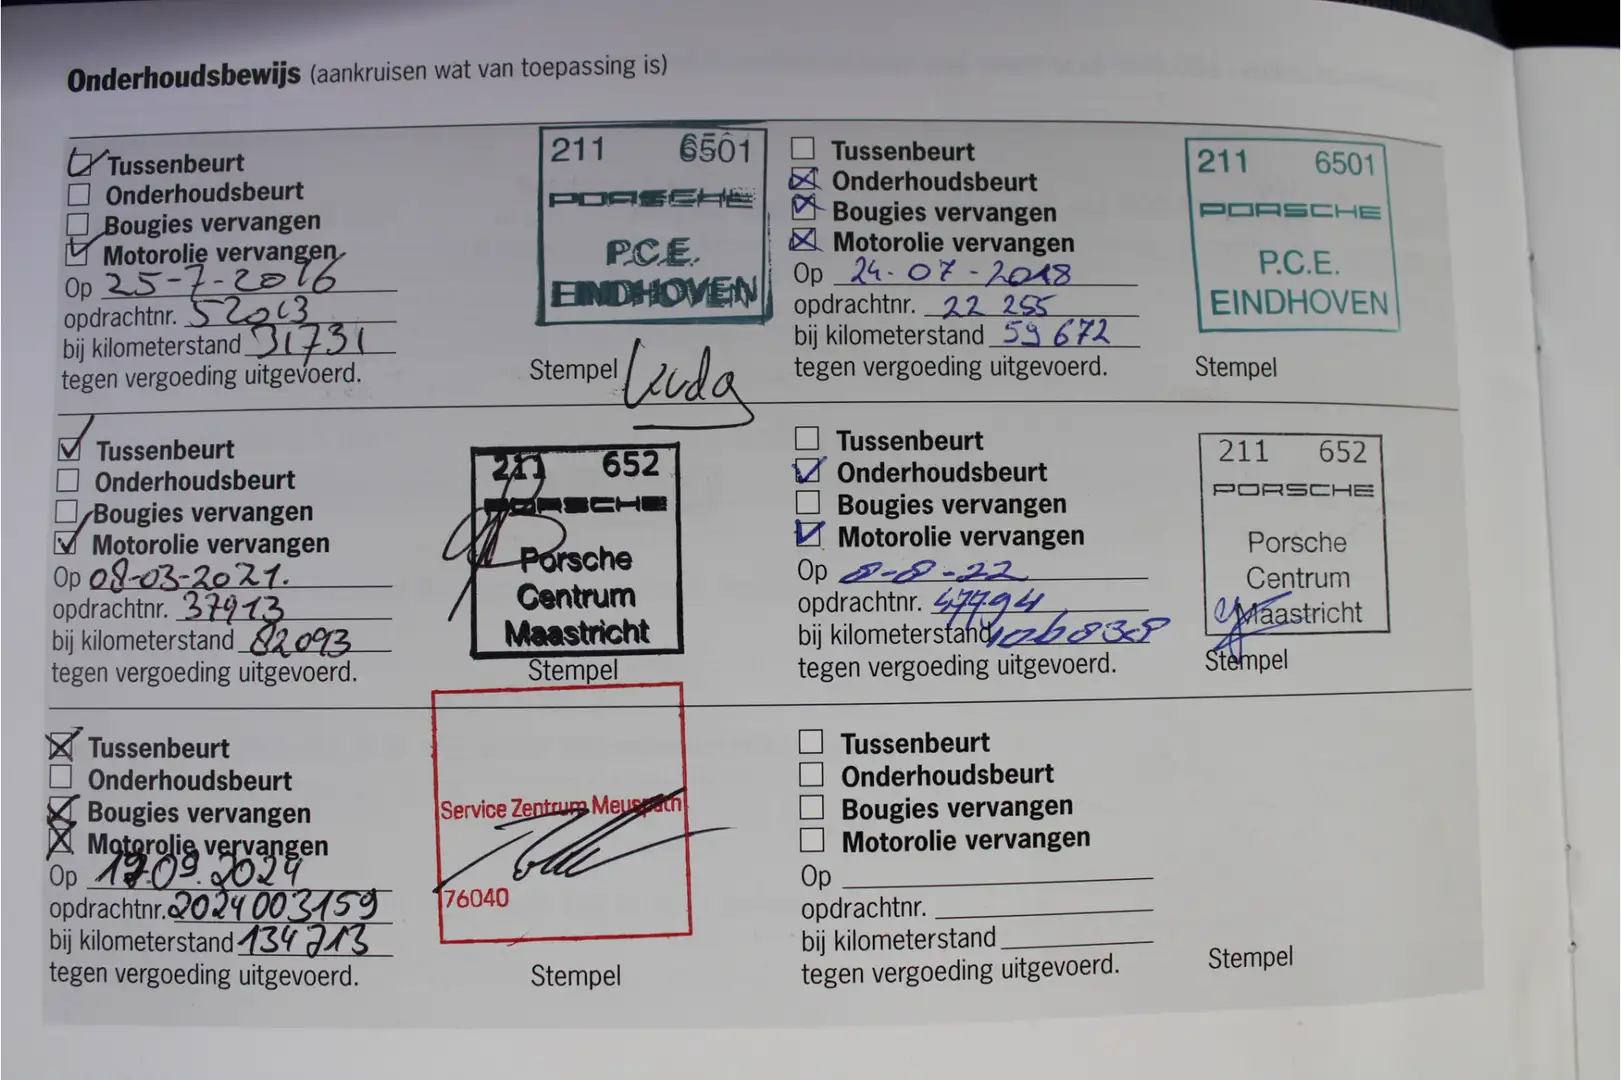 Onderhoudsbewijs (aankruisen wat van toepassing is)
Tussenbeurt
Onderhoudsbeurt
Bougies vervangen
Motorolie vervangen
Op 25-7-2016
opdrachtnr. 52013
bij kilometerstand 31731
tegen vergoeding uitgevoerd.
211 6501
PORSCHE
P.C.E.
EINDHOVEN
Stempel
Tussenbeurt
Onderhoudsbeurt
Bougies vervangen
Motorolie vervangen
Op 24-07-2018
opdrachtnr. 22 255
bij kilometerstand 59 672
tegen vergoeding uitgevoerd.
211 6501
PORSCHE
P.C.E.
EINDHOVEN
Stempel
Tussenbeurt
Onderhoudsbeurt
Bougies vervangen
Motorolie vervangen
Op 08-03-2021.
opdrachtnr. 37913
bij kilometerstand 82093
tegen vergoeding uitgevoerd.
211 652
PORSCHE
Porsche
Centrum
Maastricht
Stempel
Tussenbeurt
Onderhoudsbeurt
Bougies vervangen
Motorolie vervangen
Op 8-8-22
opdrachtnr. 47794
bij kilometerstand 106838
tegen vergoeding uitgevoerd.
211 652
PORSCHE
Porsche
Centrum
Maastricht
Stempel
Tussenbeurt
Onderhoudsbeurt
Bougies vervangen
Motorolie vervangen
Op 19.09.2024
opdrachtnr. 2024003159
bij kilometerstand 134713
tegen vergoeding uitgevoerd.
Service Zentrum Meuspath
76040
Stempel
Tussenbeurt
Onderhoudsbeurt
Bougies vervangen
Motorolie vervangen
Op
opdrachtnr.
bij kilometerstand
tegen vergoeding uitgevoerd.
Stempel